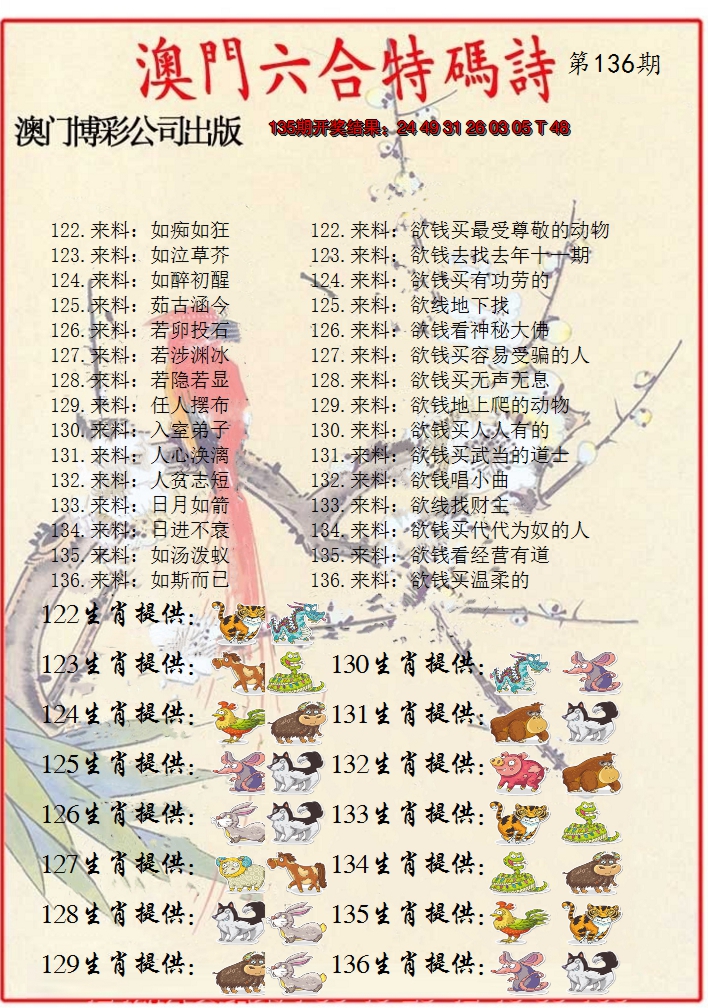 澳門六合特碼詩 第136期
澳门博彩公司出版 135期开奖结果：24 49 31 26 03 05 T 48
122.来料：如痴如狂 122.来料：欲钱买最受尊敬的动物
123.来料：如泣草芥 123.来料：欲钱去找去年十一期
124.来料：如醉初醒 124.来料：欲钱买有功劳的
125.来料：茹古涵今 125.来料：欲线地下找
126.来料：若卵投石 126.来料：欲钱看神秘大佛
127.来料：若涉渊冰 127.来料：欲钱买容易受骗的人
128.来料：若隐若显 128.来料：欲钱买无声无息
129.来料：任人摆布 129.来料：欲钱地上爬的动物
130.来料：入室弟子 130.来料：欲钱买人人有的
131.来料：人心涣漓 131.来料：欲钱买武当的道士
132.来料：人贫志短 132.来料：欲钱唱小曲
133.来料：日月如箭 133.来料：欲线找财主
134.来料：日进不衰 134.来料：欲钱买代代为奴的人
135.来料：如汤泼蚁 135.来料：欲钱看经营有道
136.来料：如斯而已 136.来料：欲钱买温柔的
122生肖提供：
123生肖提供： 130生肖提供：
124生肖提供： 131生肖提供：
125生肖提供： 132生肖提供：
126生肖提供： 133生肖提供：
127生肖提供： 134生肖提供：
128生肖提供： 135生肖提供：
129生肖提供： 136生肖提供：